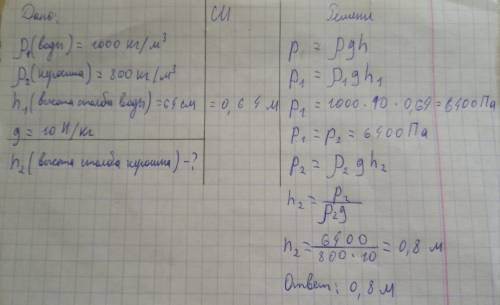 Дано:
ρ₁(воды) = 1000 кг/м³
ρ₂(керосина) = 800 кг/м³
h₁(высота столба воды) = 64 см
g = 10 Н/кг
h₂(высота столба керосина) - ?
СИ
= 0,64 м
Решение
p = ρgh
p₁ = ρ₁gh₁
p₁ = 1000 · 10 · 0,64 = 6400 Па
p₁ = p₂ = 6400 Па
p₂ = ρ₂gh₂
h₂ = p₂/ρ₂g
h₂ = 6400/800·10 = 0,8 м
Ответ: 0,8 м